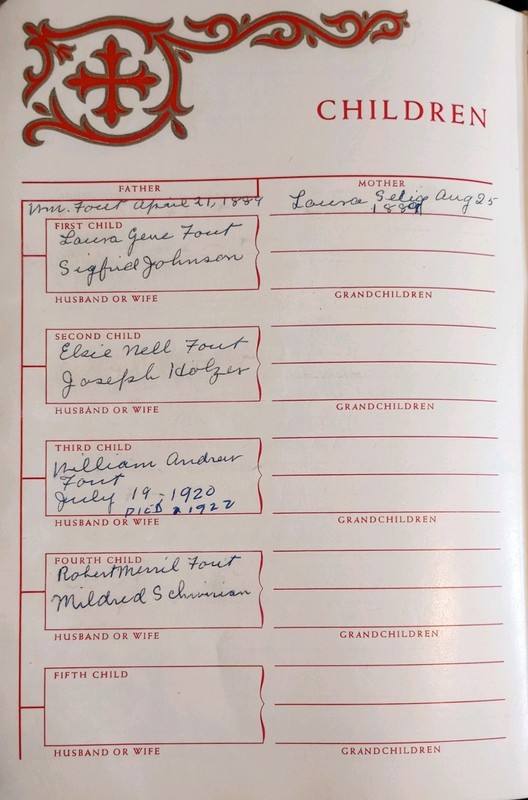 CHILDREN
FATHER
MOTHER
Wm. Fout April 21, 1884
Laura Selig Aug 25
FIRST CHILD
Laura Gene Fout
Sigfrid Johnson
HUSBAND OR WIFE
GRANDCHILDREN
SECOND CHILD
Elsie Nell Fout
Joseph Holzer
HUSBAND OR WIFE
GRANDCHILDREN
THIRD CHILD
William Andrew
Fout
July 19 - 1920
DIED 1922
HUSBAND OR WIFE
GRANDCHILDREN
FOURTH CHILD
Robert Merril Fout
Mildred Schwirian
HUSBAND OR WIFE
GRANDCHILDREN
FIFTH CHILD
HUSBAND OR WIFE
GRANDCHILDREN